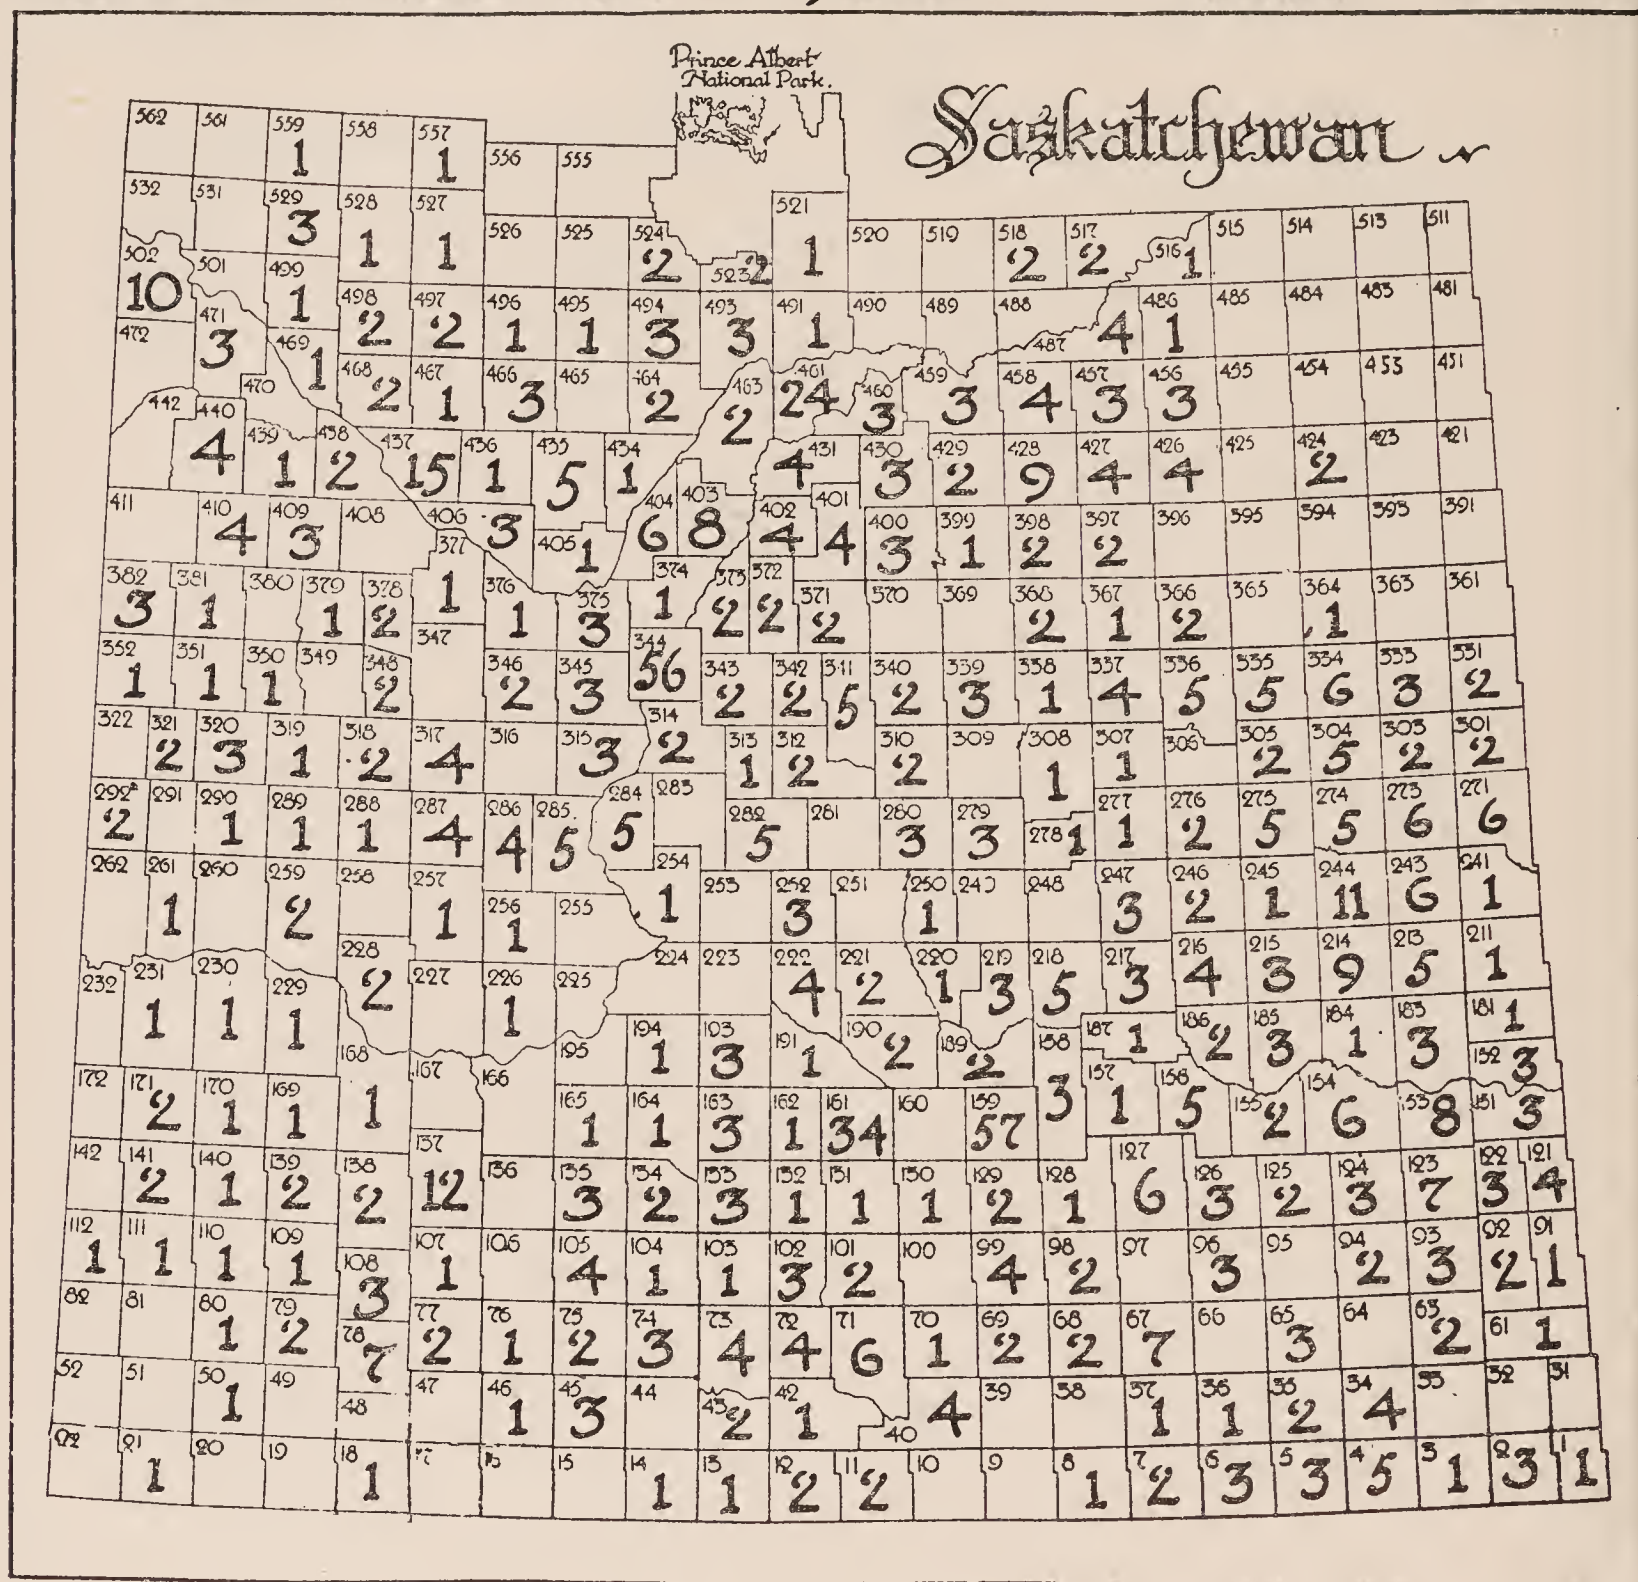 Prince Albert
National Park.
Saskatchewan
562 561 559 1 558 557 1 556 555
532 531 529 3 528 1 527 1 526 525 524 2 523 2 521 1 520 519 518 2 517 2 516 1 515 514 513 511
502 10 501 499 1 498 2 497 2 496 1 495 1 494 3 493 3 491 1 490 489 488 487 4 486 1 485 484 483 481
472 471 3 470 469 1 468 2 467 1 466 3 465 464 2 463 2 461 24 460 3 459 3 458 4 457 3 456 3 455 454 453 451
442 440 4 439 1 438 2 437 15 436 1 435 5 434 1 431 4 430 3 429 2 428 9 427 4 426 4 425 424 2 423 421
411 410 4 409 3 408 406 3 405 1 404 6 403 8 402 4 401 4 400 3 399 1 398 2 397 2 396 395 394 393 391
382 3 381 1 380 379 1 378 2 377 1 376 1 375 3 374 1 373 2 372 2 371 2 370 369 368 2 367 1 366 2 365 364 1 363 361
352 1 351 1 350 1 349 348 2 347 346 2 345 3 344 56 343 2 342 2 341 5 340 2 339 3 338 1 337 4 336 5 335 5 334 6 333 3 331 2
322 321 2 320 3 319 1 318 2 317 4 316 315 3 314 2 313 1 312 2 310 2 309 308 1 307 1 306 305 2 304 5 303 2 301 2
292 2 291 290 1 289 1 288 1 287 4 286 4 285 5 284 5 283 282 5 281 280 3 279 3 278 1 277 1 276 2 275 5 274 5 273 6 271 6
262 261 1 260 259 2 258 257 1 256 1 255 254 1 253 252 3 251 250 1 249 248 247 3 246 2 245 1 244 11 243 6 241 1
232 231 1 230 1 229 1 228 2 227 226 1 225 224 223 222 4 221 2 220 1 219 3 218 5 217 3 216 4 215 3 214 9 213 5 211 1
195 194 1 193 3 191 1 190 2 189 2 187 1 186 2 185 3 184 1 183 3 181 1
172 171 2 170 1 169 1 168 1 167 166 165 1 164 1 163 3 162 1 161 34 160 159 57 158 3 157 1 156 5 155 2 154 6 153 8 152 3 151 3
142 141 2 140 1 139 2 138 2 137 12 136 135 3 134 2 133 3 132 1 131 1 130 1 129 2 128 1 127 6 126 3 125 2 124 3 123 7 122 3 121 4
112 1 111 1 110 1 109 1 108 3 107 1 106 105 4 104 1 103 1 102 3 101 2 100 99 4 98 2 97 96 3 95 94 2 93 3 92 2 91 1
82 81 80 1 79 2 78 7 77 2 76 1 75 2 74 3 73 4 72 4 71 6 70 1 69 2 68 2 67 7 66 65 3 64 63 2 61 1
52 51 50 1 49 48 47 46 1 45 3 44 43 2 42 1 40 4 39 38 37 1 36 1 35 2 34 4 33 32 31
22 21 1 20 19 18 1 17 16 15 14 1 13 1 12 2 11 2 10 9 8 1 7 2 6 3 5 3 4 5 3 1 2 3 1 1